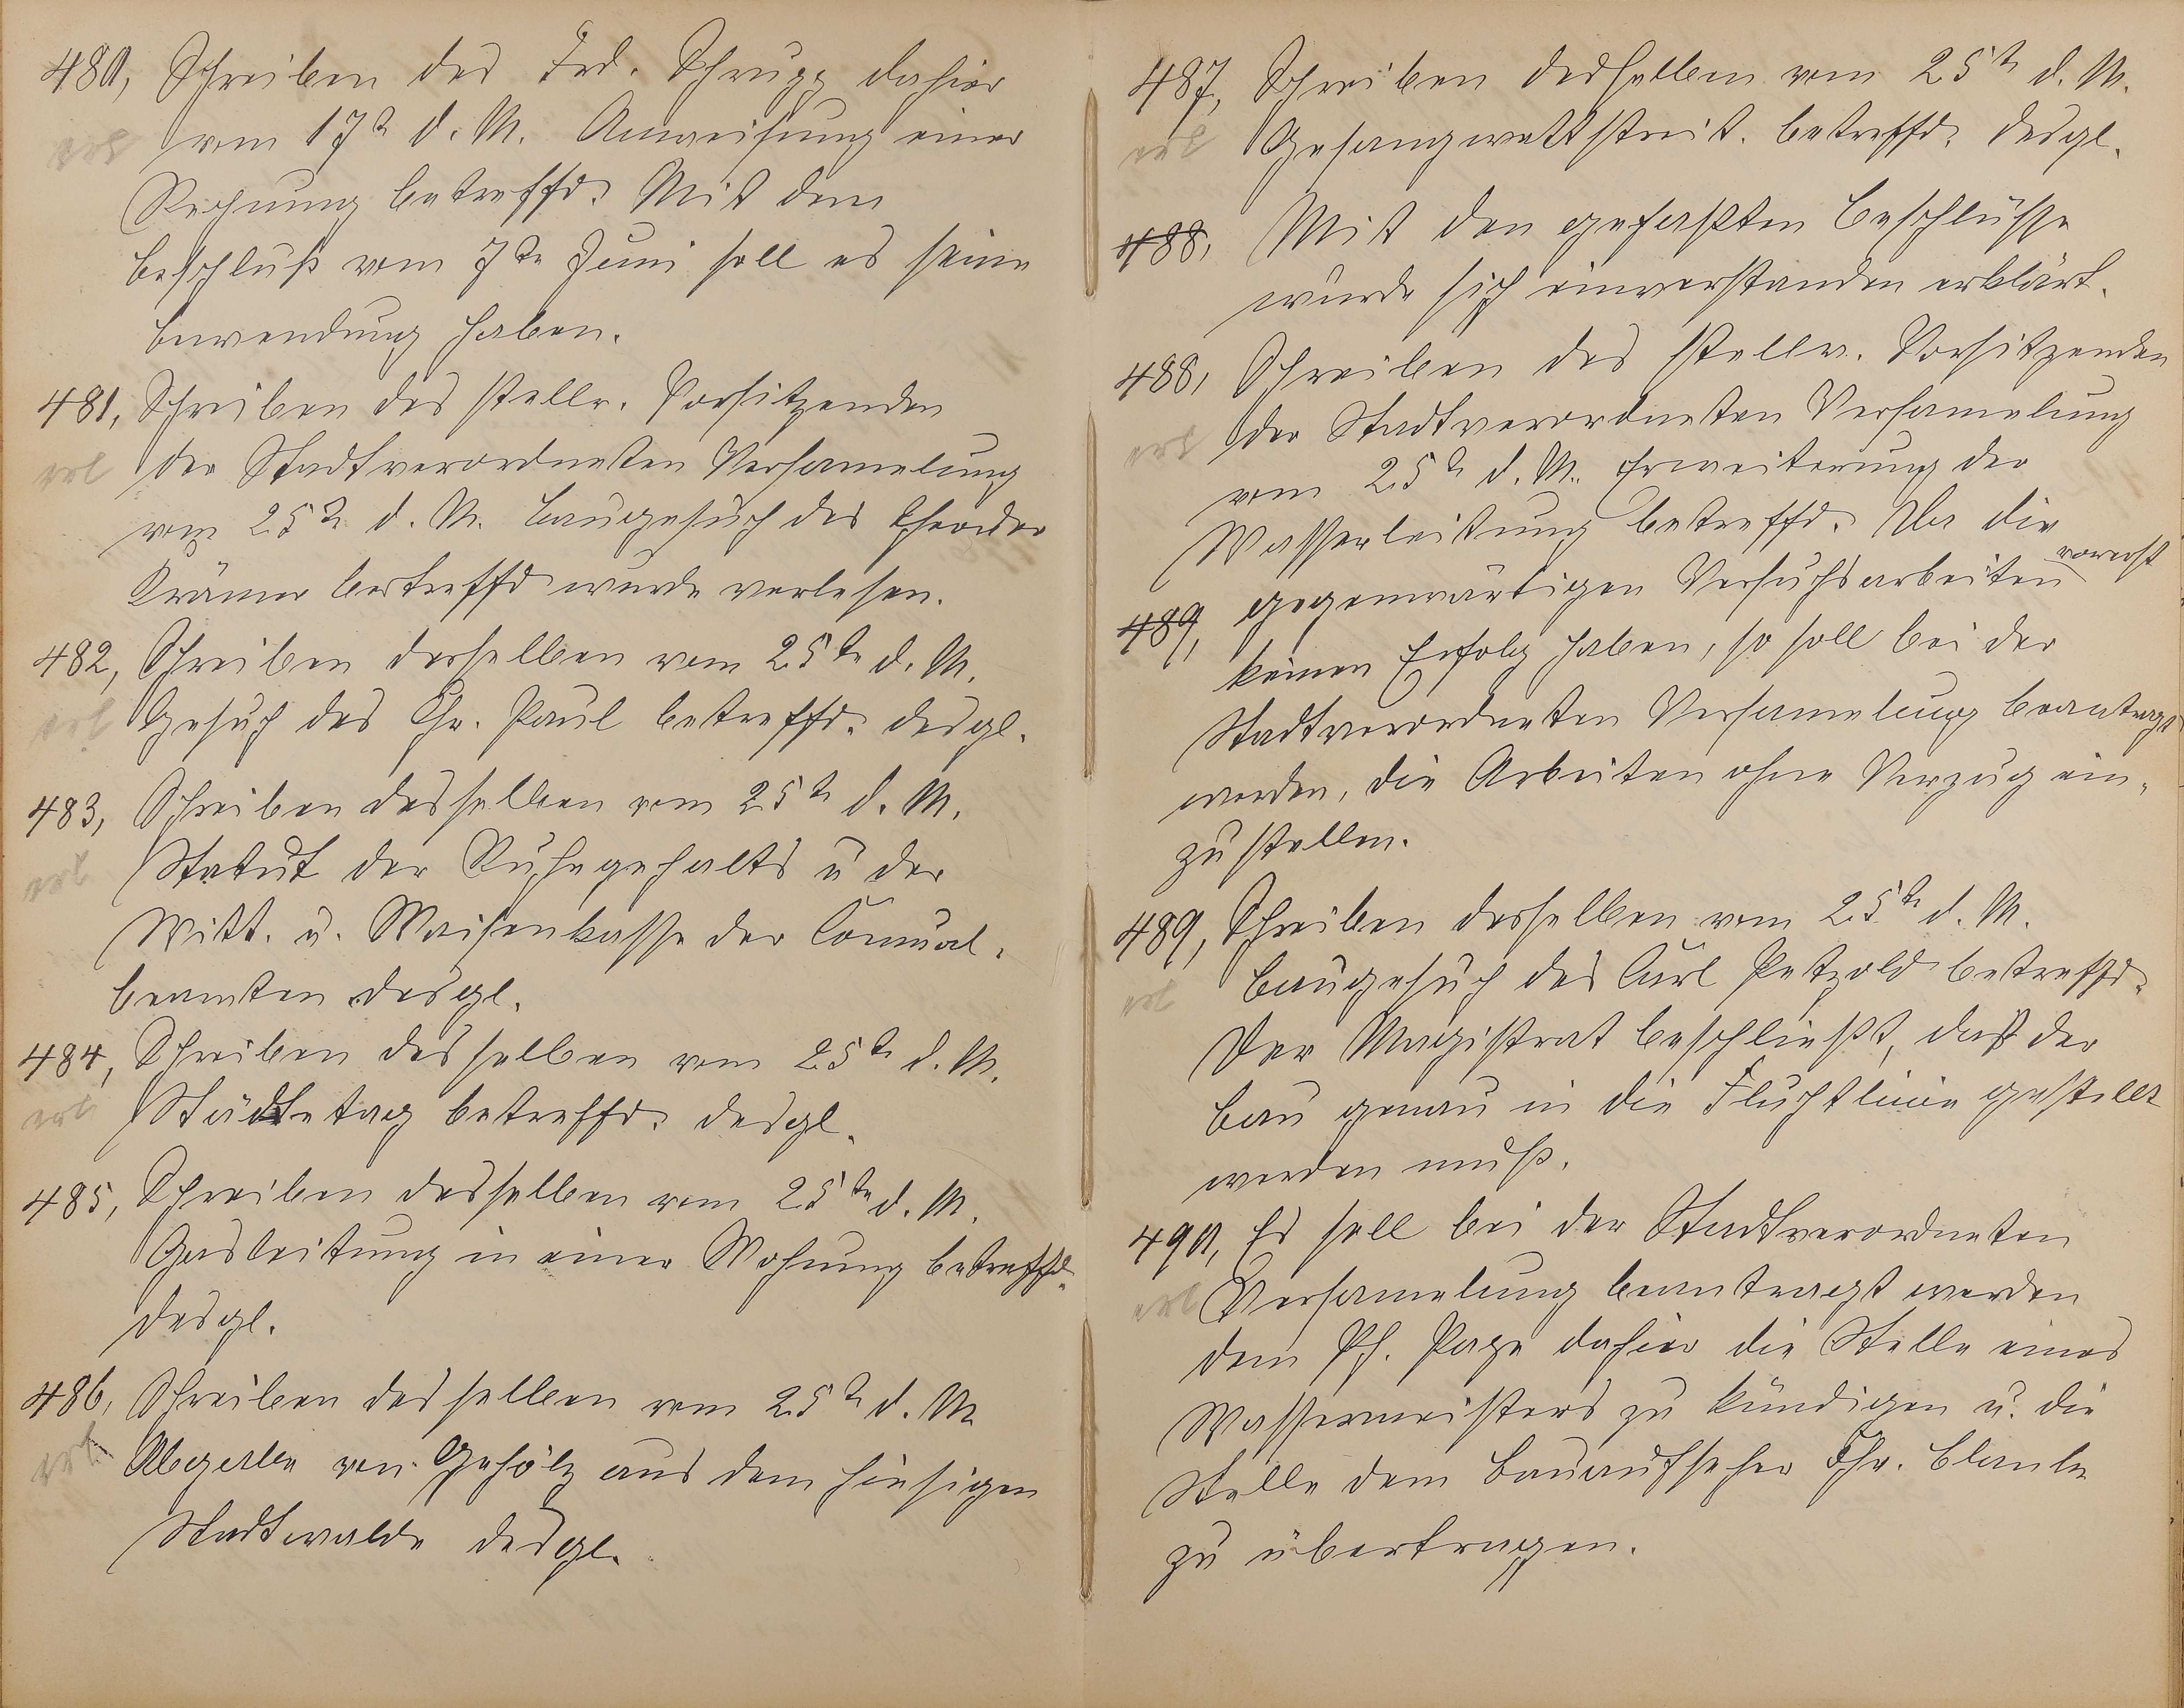 480, Schreiben des Frd. Schrupp dahier
erl vom 17tn d. M. Anweisung einer
Rechnung betreffd. Mit dem
Beschluß vom 7tn Juni soll es seine
Bewendung haben.
481, Schreiben des stellv. Vorsitzenden
erl der Stadtverordneten Versamelung
vom 25tn d. M. Baugesuch des Theodor
Krämer betreffd wurde verlesen.
482, Schreiben desselben vom 25tn d. M.
erl Gesuch des Chr. Paul betreffd. desgl.
483, Schreiben desselben vom 25tn d. M.
erl Statut der Ruhegehalts u der
Witt. u. Waisenkasse der Comunal-
beamten desgl.
484, Schreiben desselben vom 25tn d. M.
erl Städtetag betreffd. desgl.
485, Schreiben desselben vom 25tn d. M.
Gasleitung in einer Wohnung betreffd.
desgl.
486, Schreiben desselben vom 25tn d. M
erl Abgabe von Gehölz aus dem hiesigen
Stadtwalde desgl.
487, Schreiben desselben vom 25tn d. M.
erl Gesangwettstreit. betreffd. desgl.
488, Mit den gefaßten Beschlüsse
wurde sich einverstanden erklärt.
488, Schreiben des stellv. Vorsitzenden
erl der Stadtverordneten Versamelung
vom 25tn d. M. Erweiterung der
Wasserleitung betreffd. Da die
489, gegenwärtigen Versuchsarbeiten vorerst
keinen Erfolg haben, so soll bei der
Stadtverordneten Versamelung beantragt
werden, die Arbeiten ohne Verzug ein-
zustellen.
489, Schreiben desselben vom 25tn d. M.
erl Baugesuch des Carl Petzold betreffd.
Der Magistrat beschließt, daß der
Bau genau in die Fluchtlinie gestellt
werden muß.
490, Es soll bei der Stadtverordneten
erl Versamelung beantragt werden
dem Ph. Page dahier die Stelle eines
Wassermeisters zu kündigen u. die
Stelle dem Bauaufseher Chr. Blank
zu übertragen.